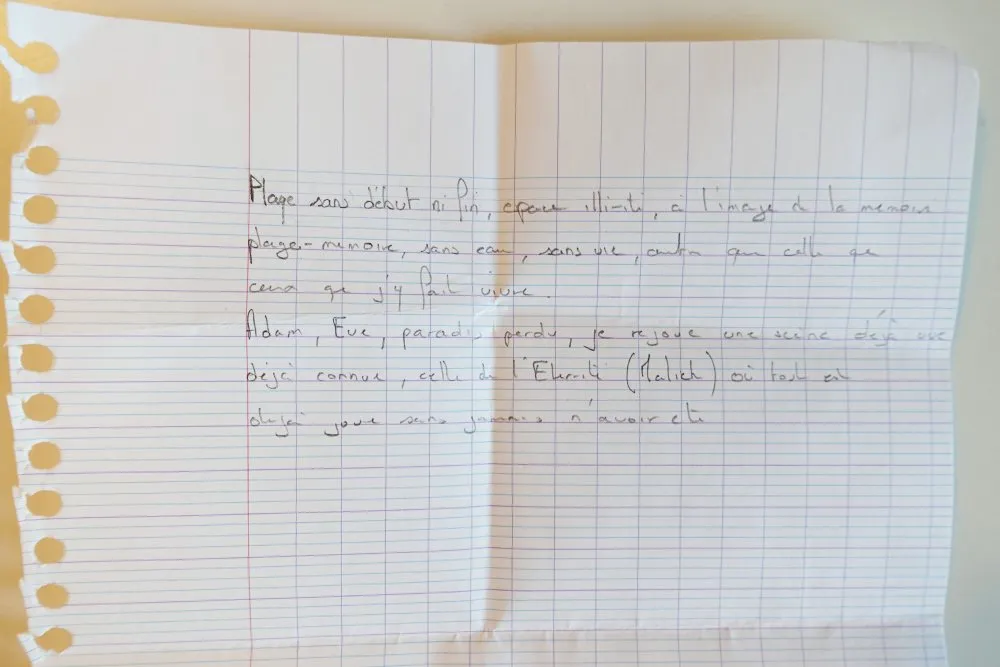 Plage sans début ni fin, espace illimité, à l'image de la mémoire
plage-mémoire, sans eau, sans vie, que celle que
ceux que j'y fait vivre.
Adam, Eve, paradis perdu, je rejoue une scène déjà vue
déjà connue, celle de l'Eternité (Malick) où tout est
déjà joué sans jamais n'avoir été